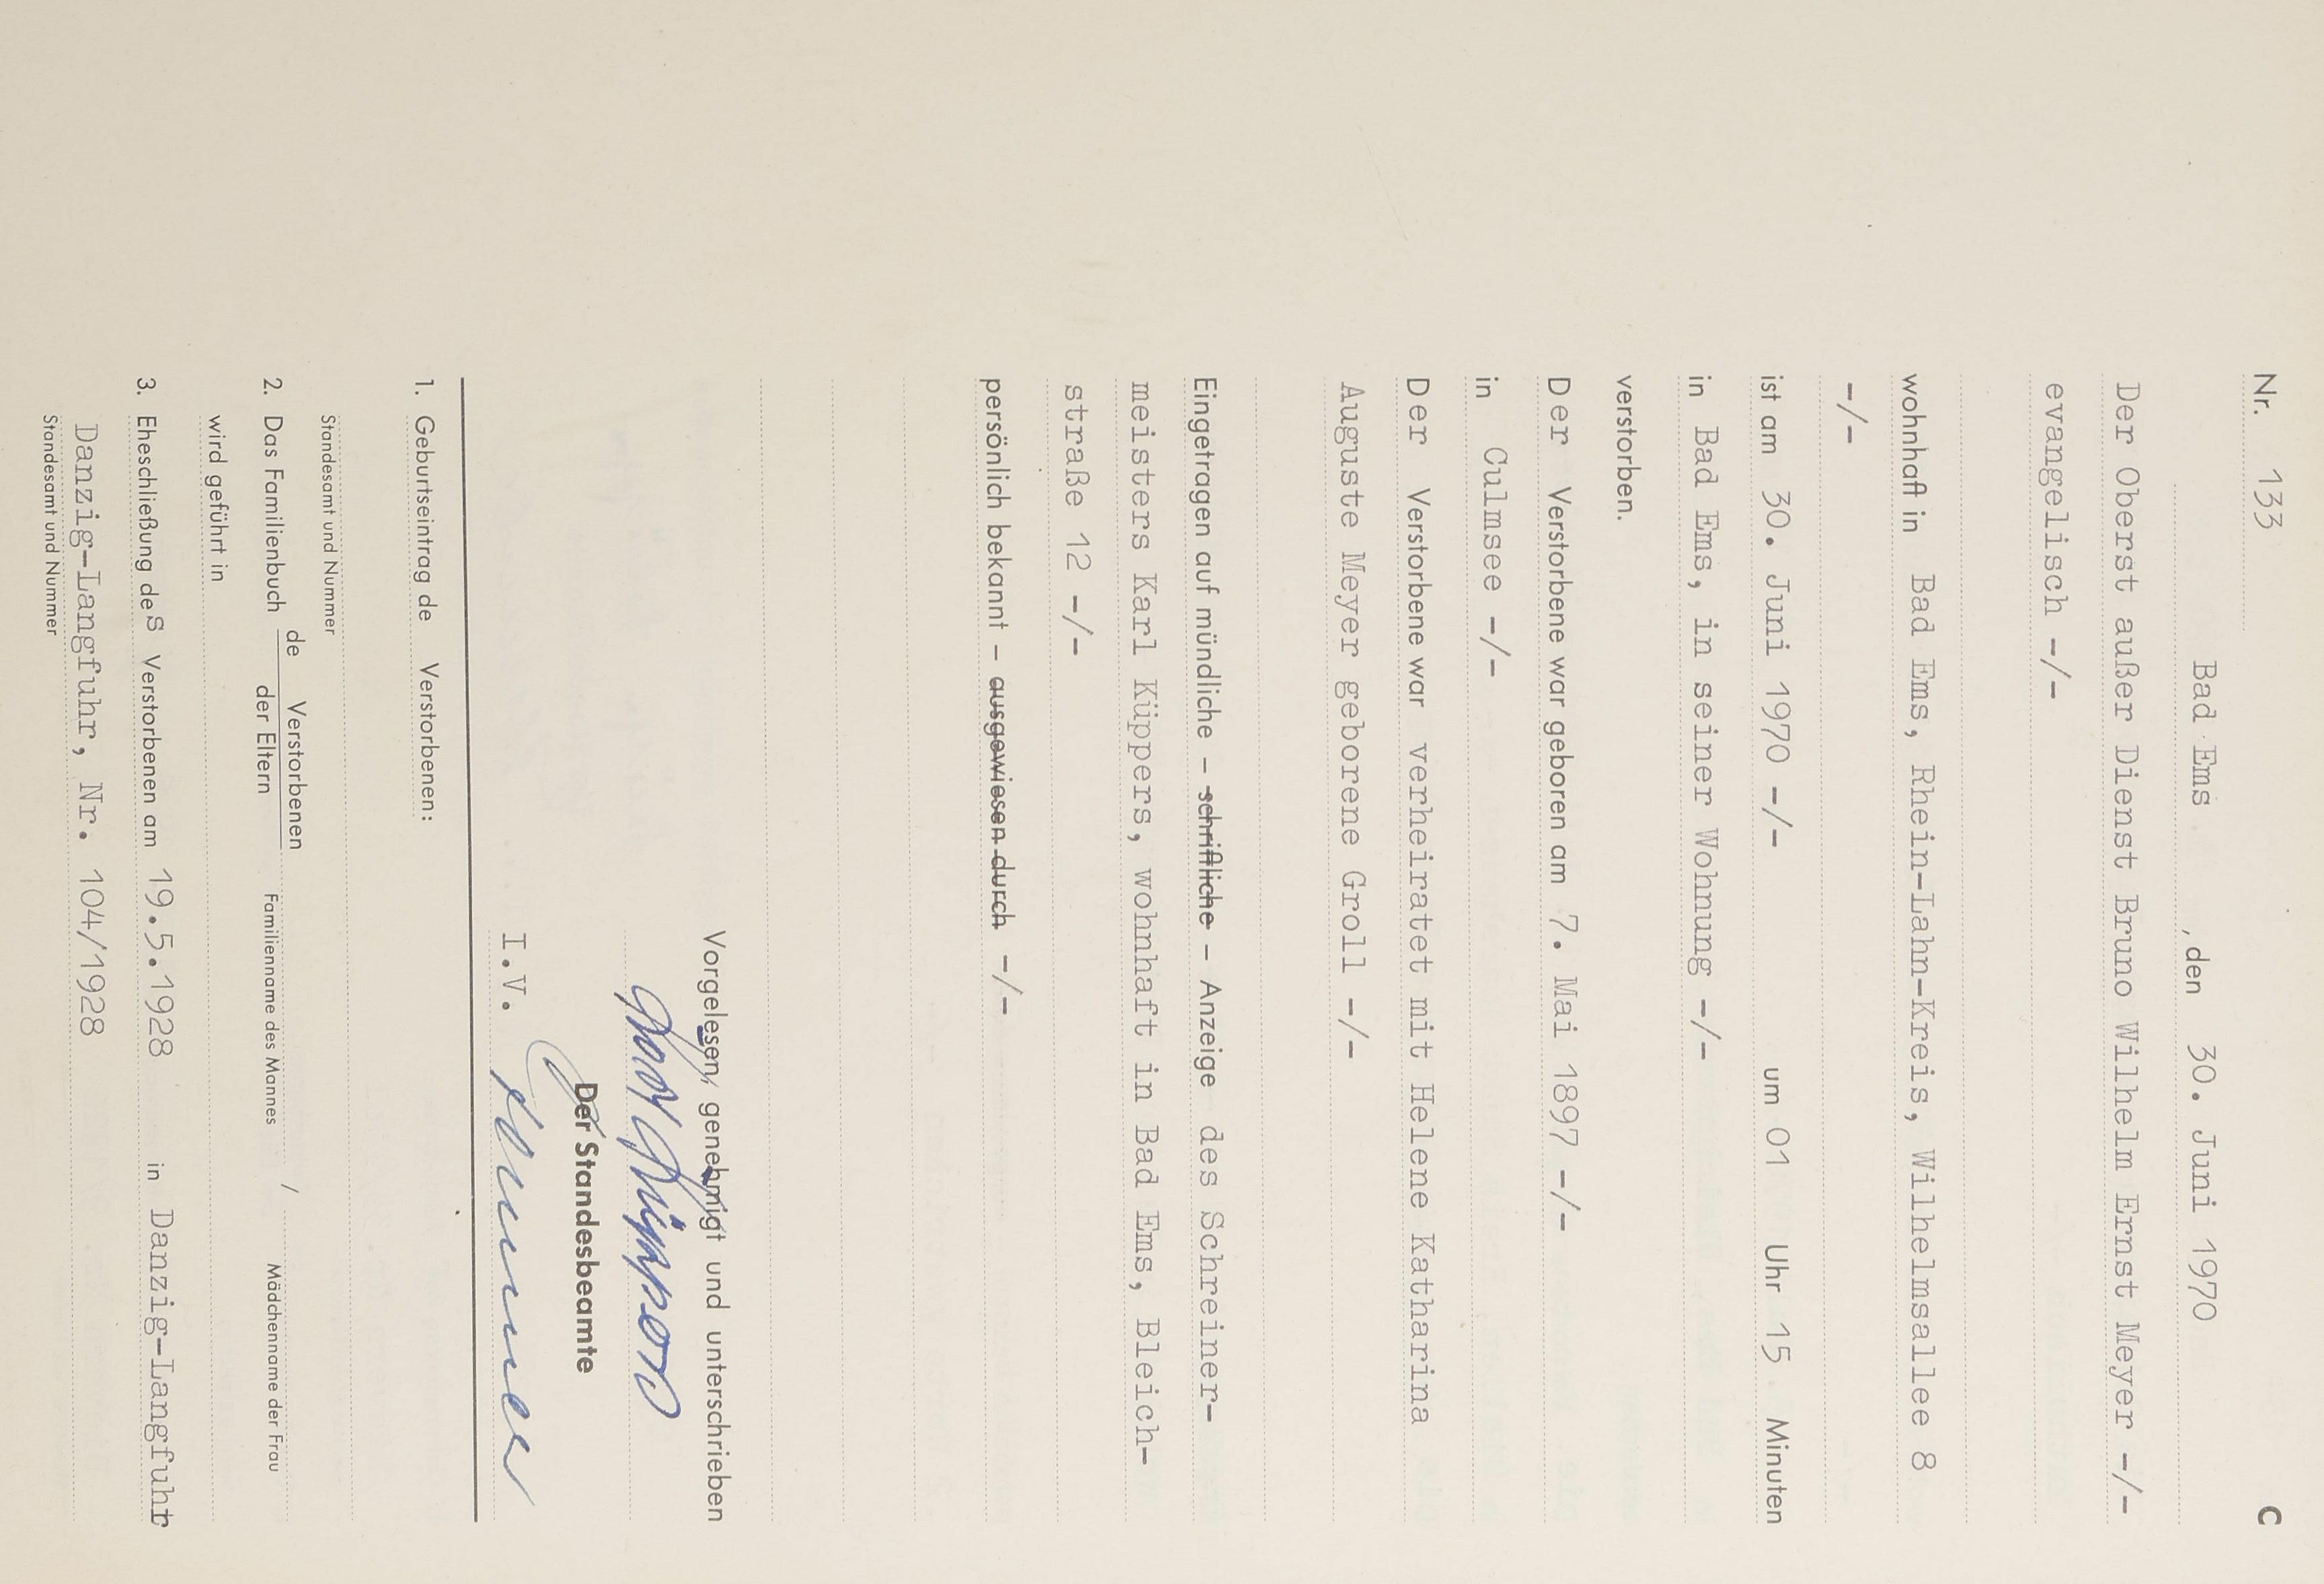 Nr. 133 C
Bad Ems, den 30. Juni 1970
Der Oberst außer Dienst Bruno Wilhelm Ernst Meyer -/-
evangelisch -/-
wohnhaft in Bad Ems, Rhein-Lahn-Kreis, Wilhelmsallee 8
-/-
ist am 30. Juni 1970 -/- um 01 Uhr 15 Minuten
in Bad Ems, in seiner Wohnung -/-
verstorben.
Der Verstorbene war geboren am 7. Mai 1897 -/-
in Culmsee -/-
Der Verstorbene war verheiratet mit Helene Katharina
Auguste Meyer geborene Groll -/-
Eingetragen auf mündliche – schriftliche – Anzeige des Schreiner-
meisters Karl Küppers, wohnhaft in Bad Ems, Bleich-
straße 12 -/-
persönlich bekannt – ausgewiesen durch -/-
Vorgelesen, genehmigt und unterschrieben
Karl Küppers
Der Standesbeamte
I.V.
1. Geburtseintrag de Verstorbenen:
Standesamt und Nummer
2. Das Familienbuch de Verstorbenen / der Eltern
Familienname des Mannes / Mädchenname der Frau
wird geführt in
3. Eheschließung des Verstorbenen am 19.5.1928 in Danzig-Langfuhr
Danzig-Langfuhr, Nr. 104/1928
Standesamt und Nummer